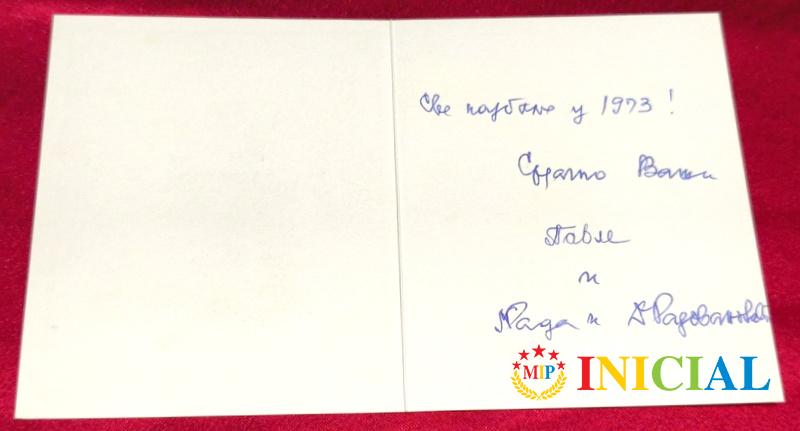 Све најбоље у 1973!
Срдачно Ваши
Павле
и
Рада и Радовановић
MIP
INICIAL